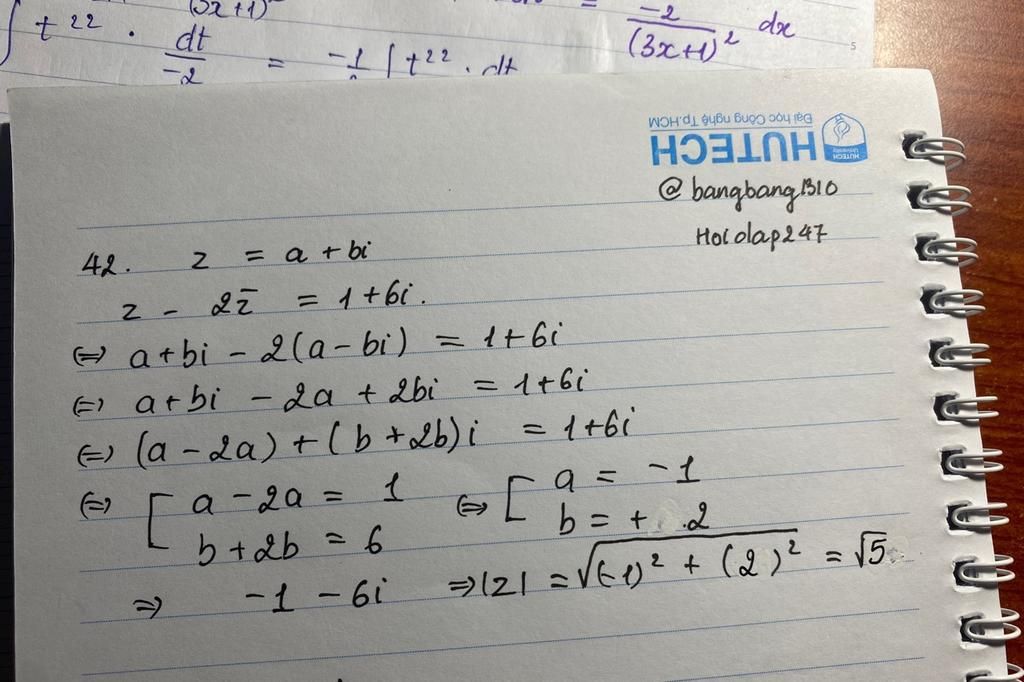 (3x+1)
∫ t²² · dt/-2 = -1/ ∫ t²² · dt
= -2/(3x+1)² dx
5
HUTECH
Đại học Công nghệ Tp.HCM
HUTECH
University
@bangbang1310
Hoidap247
42. z = a + bi
z - 2z̄ = 1+6i.
⇔ a+bi - 2(a-bi) = 1+6i
⇔ a+bi - 2a + 2bi = 1+6i
⇔ (a-2a) + (b+2b)i = 1+6i
⇔ [ a - 2a = 1 ⇔ [ a = -1
b+2b = 6 b = + 2
⇒ -1 - 6i ⇒ |z| = √((-1)² + (2)²) = √5